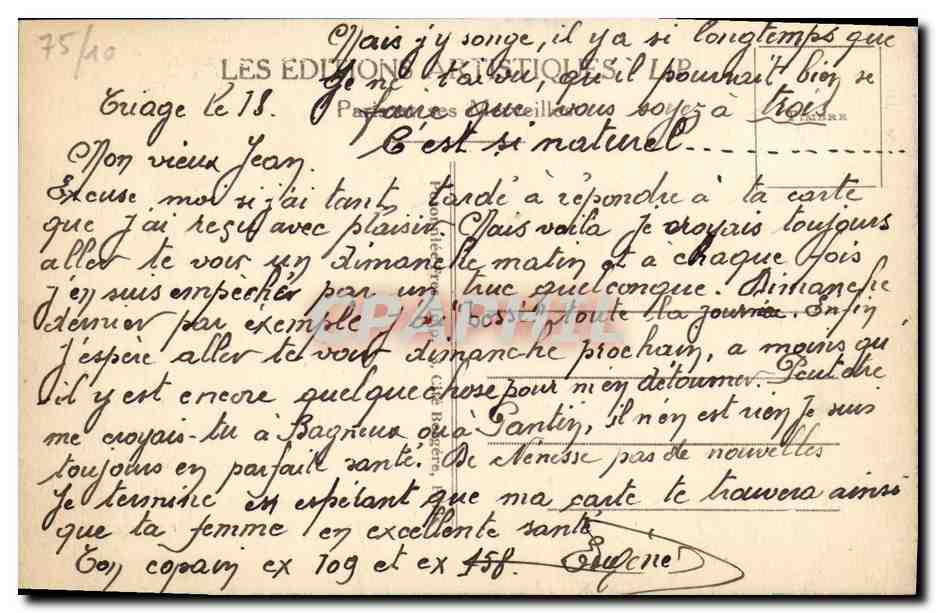 75/10
Mais j'y songe, il y a si longtemps que
LES EDITIONS ARTISTIQUES LIP
je ne t'ai vu, qu'il pourrait bien se
Triage le 18.
faire que vous soyez à trois
TIMBRE
C'est si naturel
Mon vieux Jean.
Excuse moi si j'ai tant tardé à répondre à ta carte
que j'ai reçu avec plaisir. Mais voila je croyais toujours
aller te voir un dimanche matin et à chaque fois
j'en suis empêcher par un truc quelconque. Dimanche
dernier par exemple j'ai "bossé" toute la journée. Enfin
j'espère aller te voir dimanche prochain, a moins qu'
il y est encore quelque chose pour m'en détourner. Peut être
me croyais-tu à Bagneux ou à Pantin, il n'en est rien je suis
toujours en parfait santé. De Nénesse pas de nouvelles
Je termine en espérant que ma carte te trouvera ainsi
que ta femme en excellente santé
Ton copain ex 109 et ex 158. Eugène
CPAPHIL